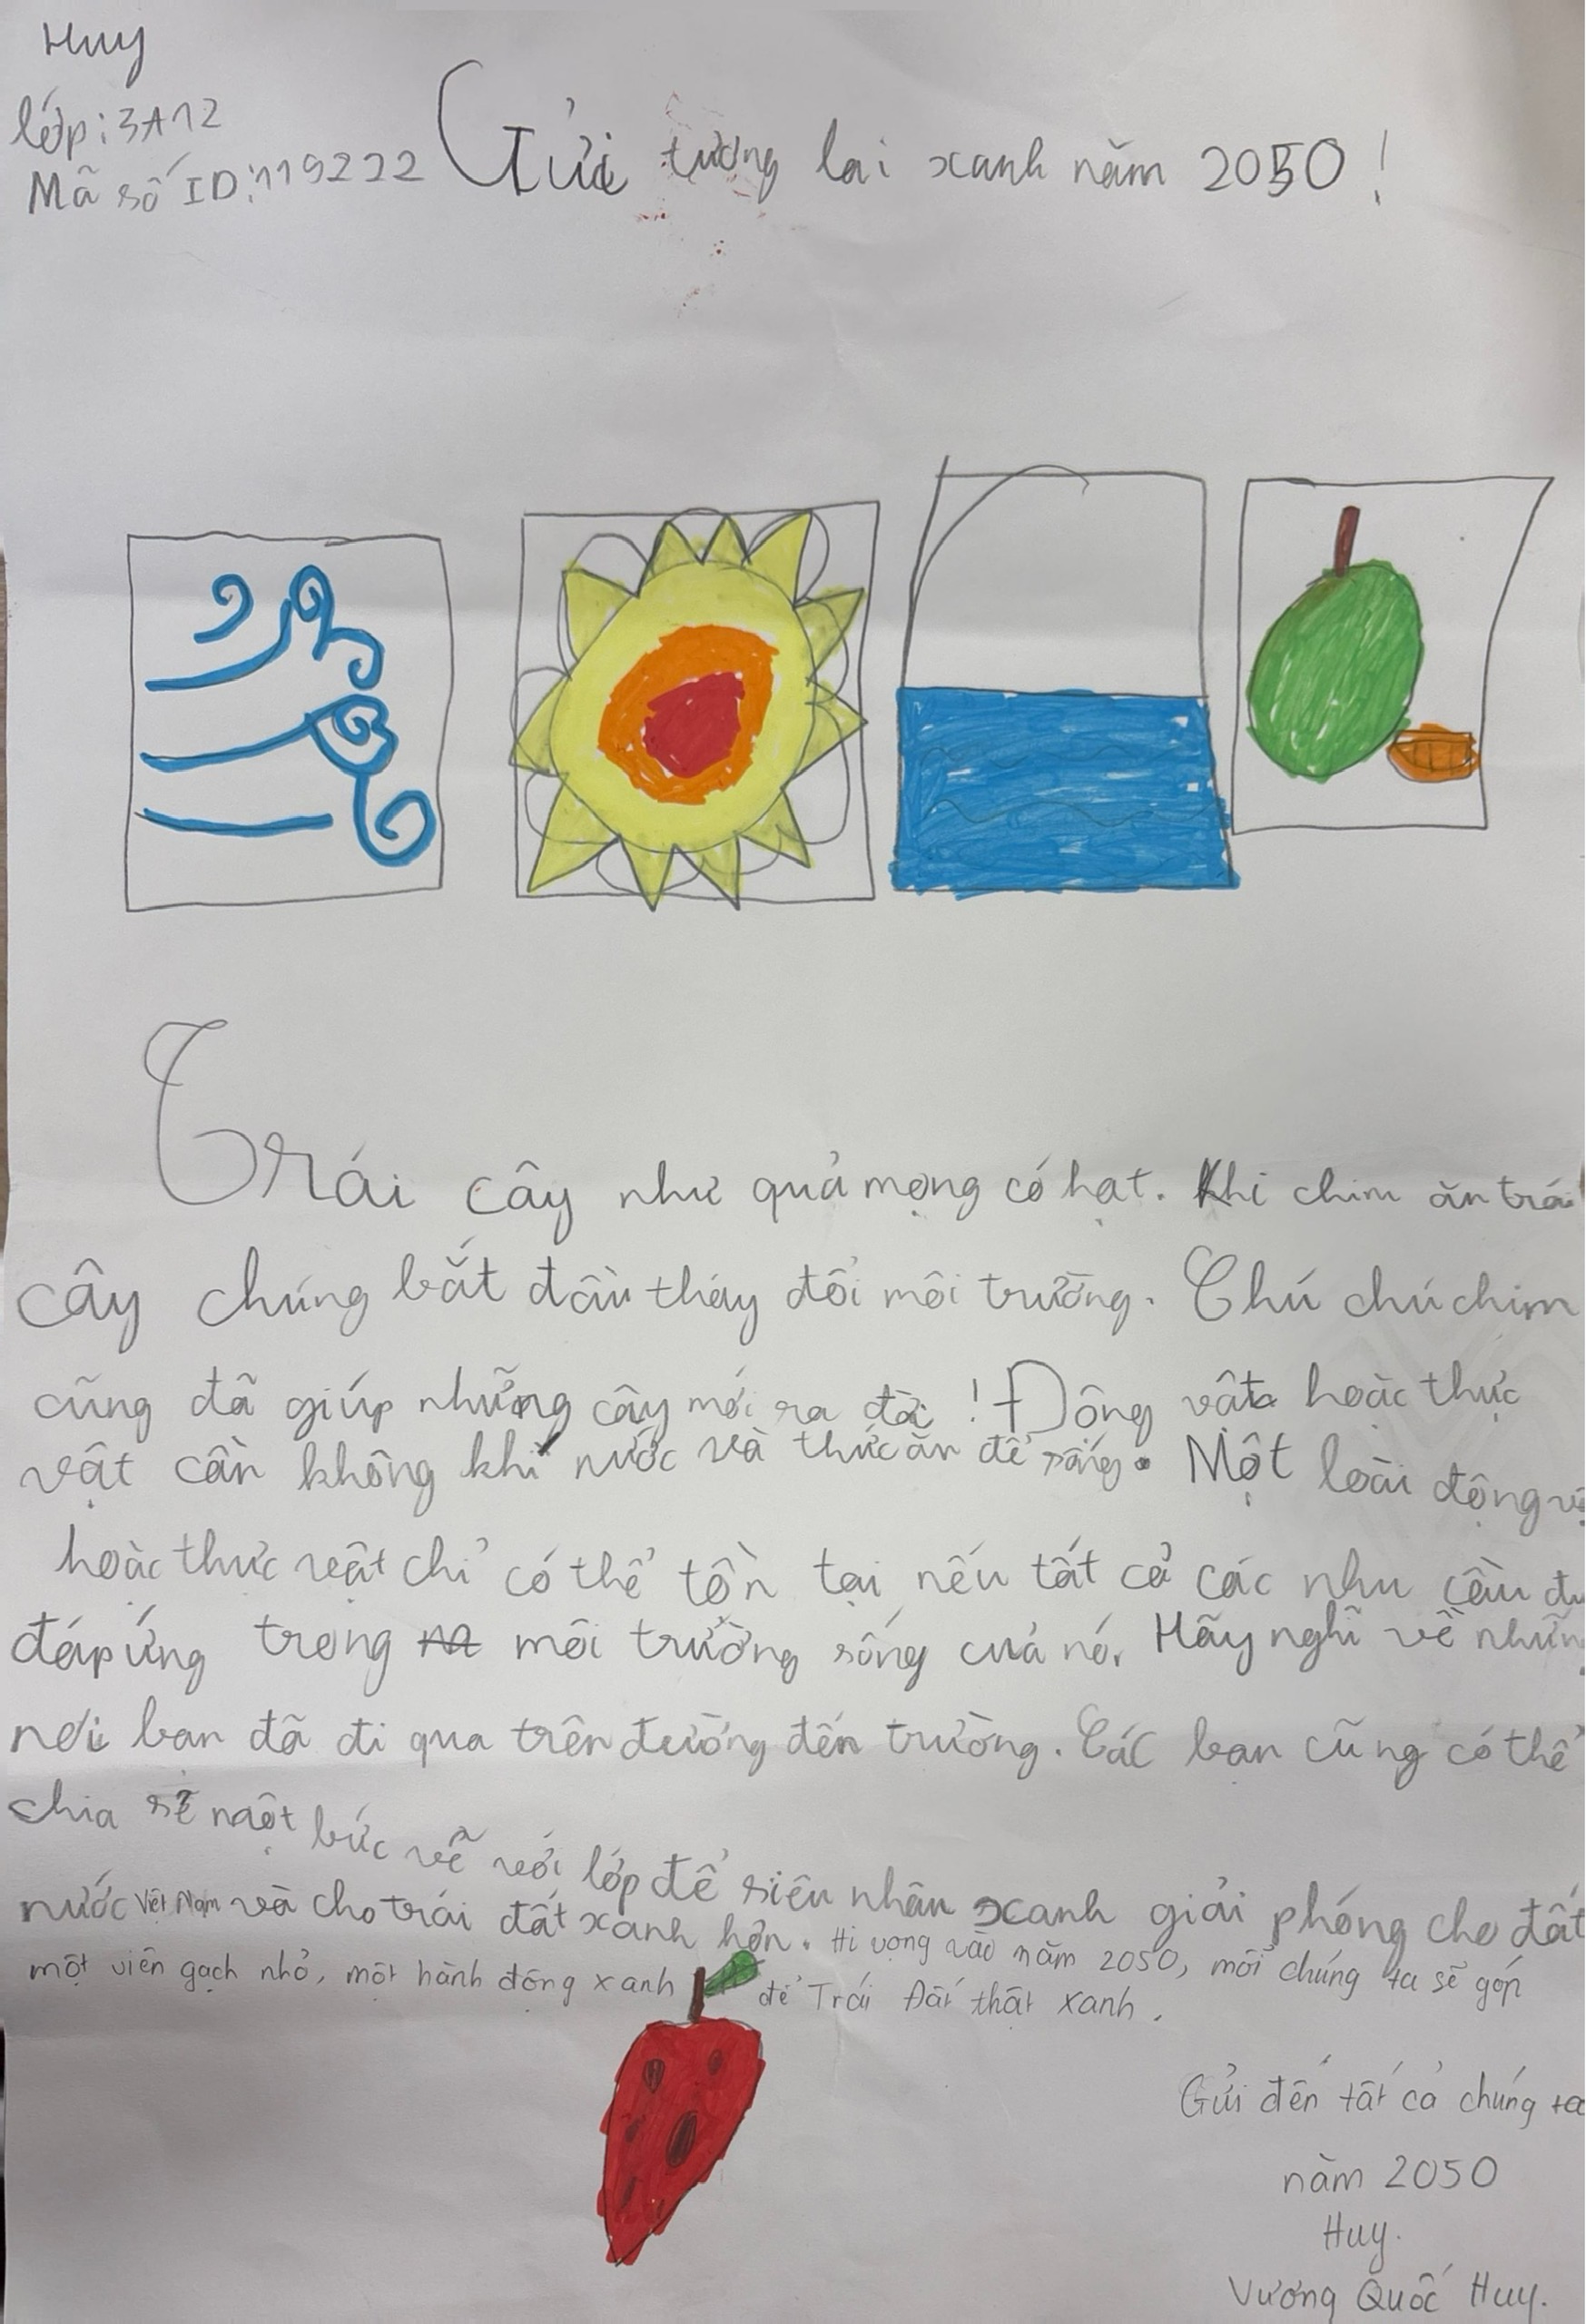 Huy
lớp: 3A12
Mã số ID: 119222
Gửi tương lai xanh năm 2050!
Trái cây như quả mọng có hạt. Khi chim ăn trái
cây chúng bắt đầu thay đổi môi trường. Chú chú chim
cũng đã giúp những cây mới ra đời! Động vật hoặc thực
vật cần không khí nước và thức ăn để sống. Một loài động
hoặc thực vật chỉ có thể tồn tại nếu tất cả các nhu cầu
đáp ứng trong môi trường sống của nó. Hãy nghĩ về những
nơi bạn đã đi qua trên đường đến trường. Các bạn cũng có thể
chia sẻ một bức vẽ với lớp để siêu nhân xanh giải phóng cho đất
nước Việt Nam và cho trái đất xanh hơn. Hi vọng vào năm 2050, mỗi chúng ta sẽ góp
một viên gạch nhỏ, một hành động xanh để Trái Đất thật xanh.
Gửi đến tất cả chúng ta
năm 2050
Huy.
Vương Quốc Huy.